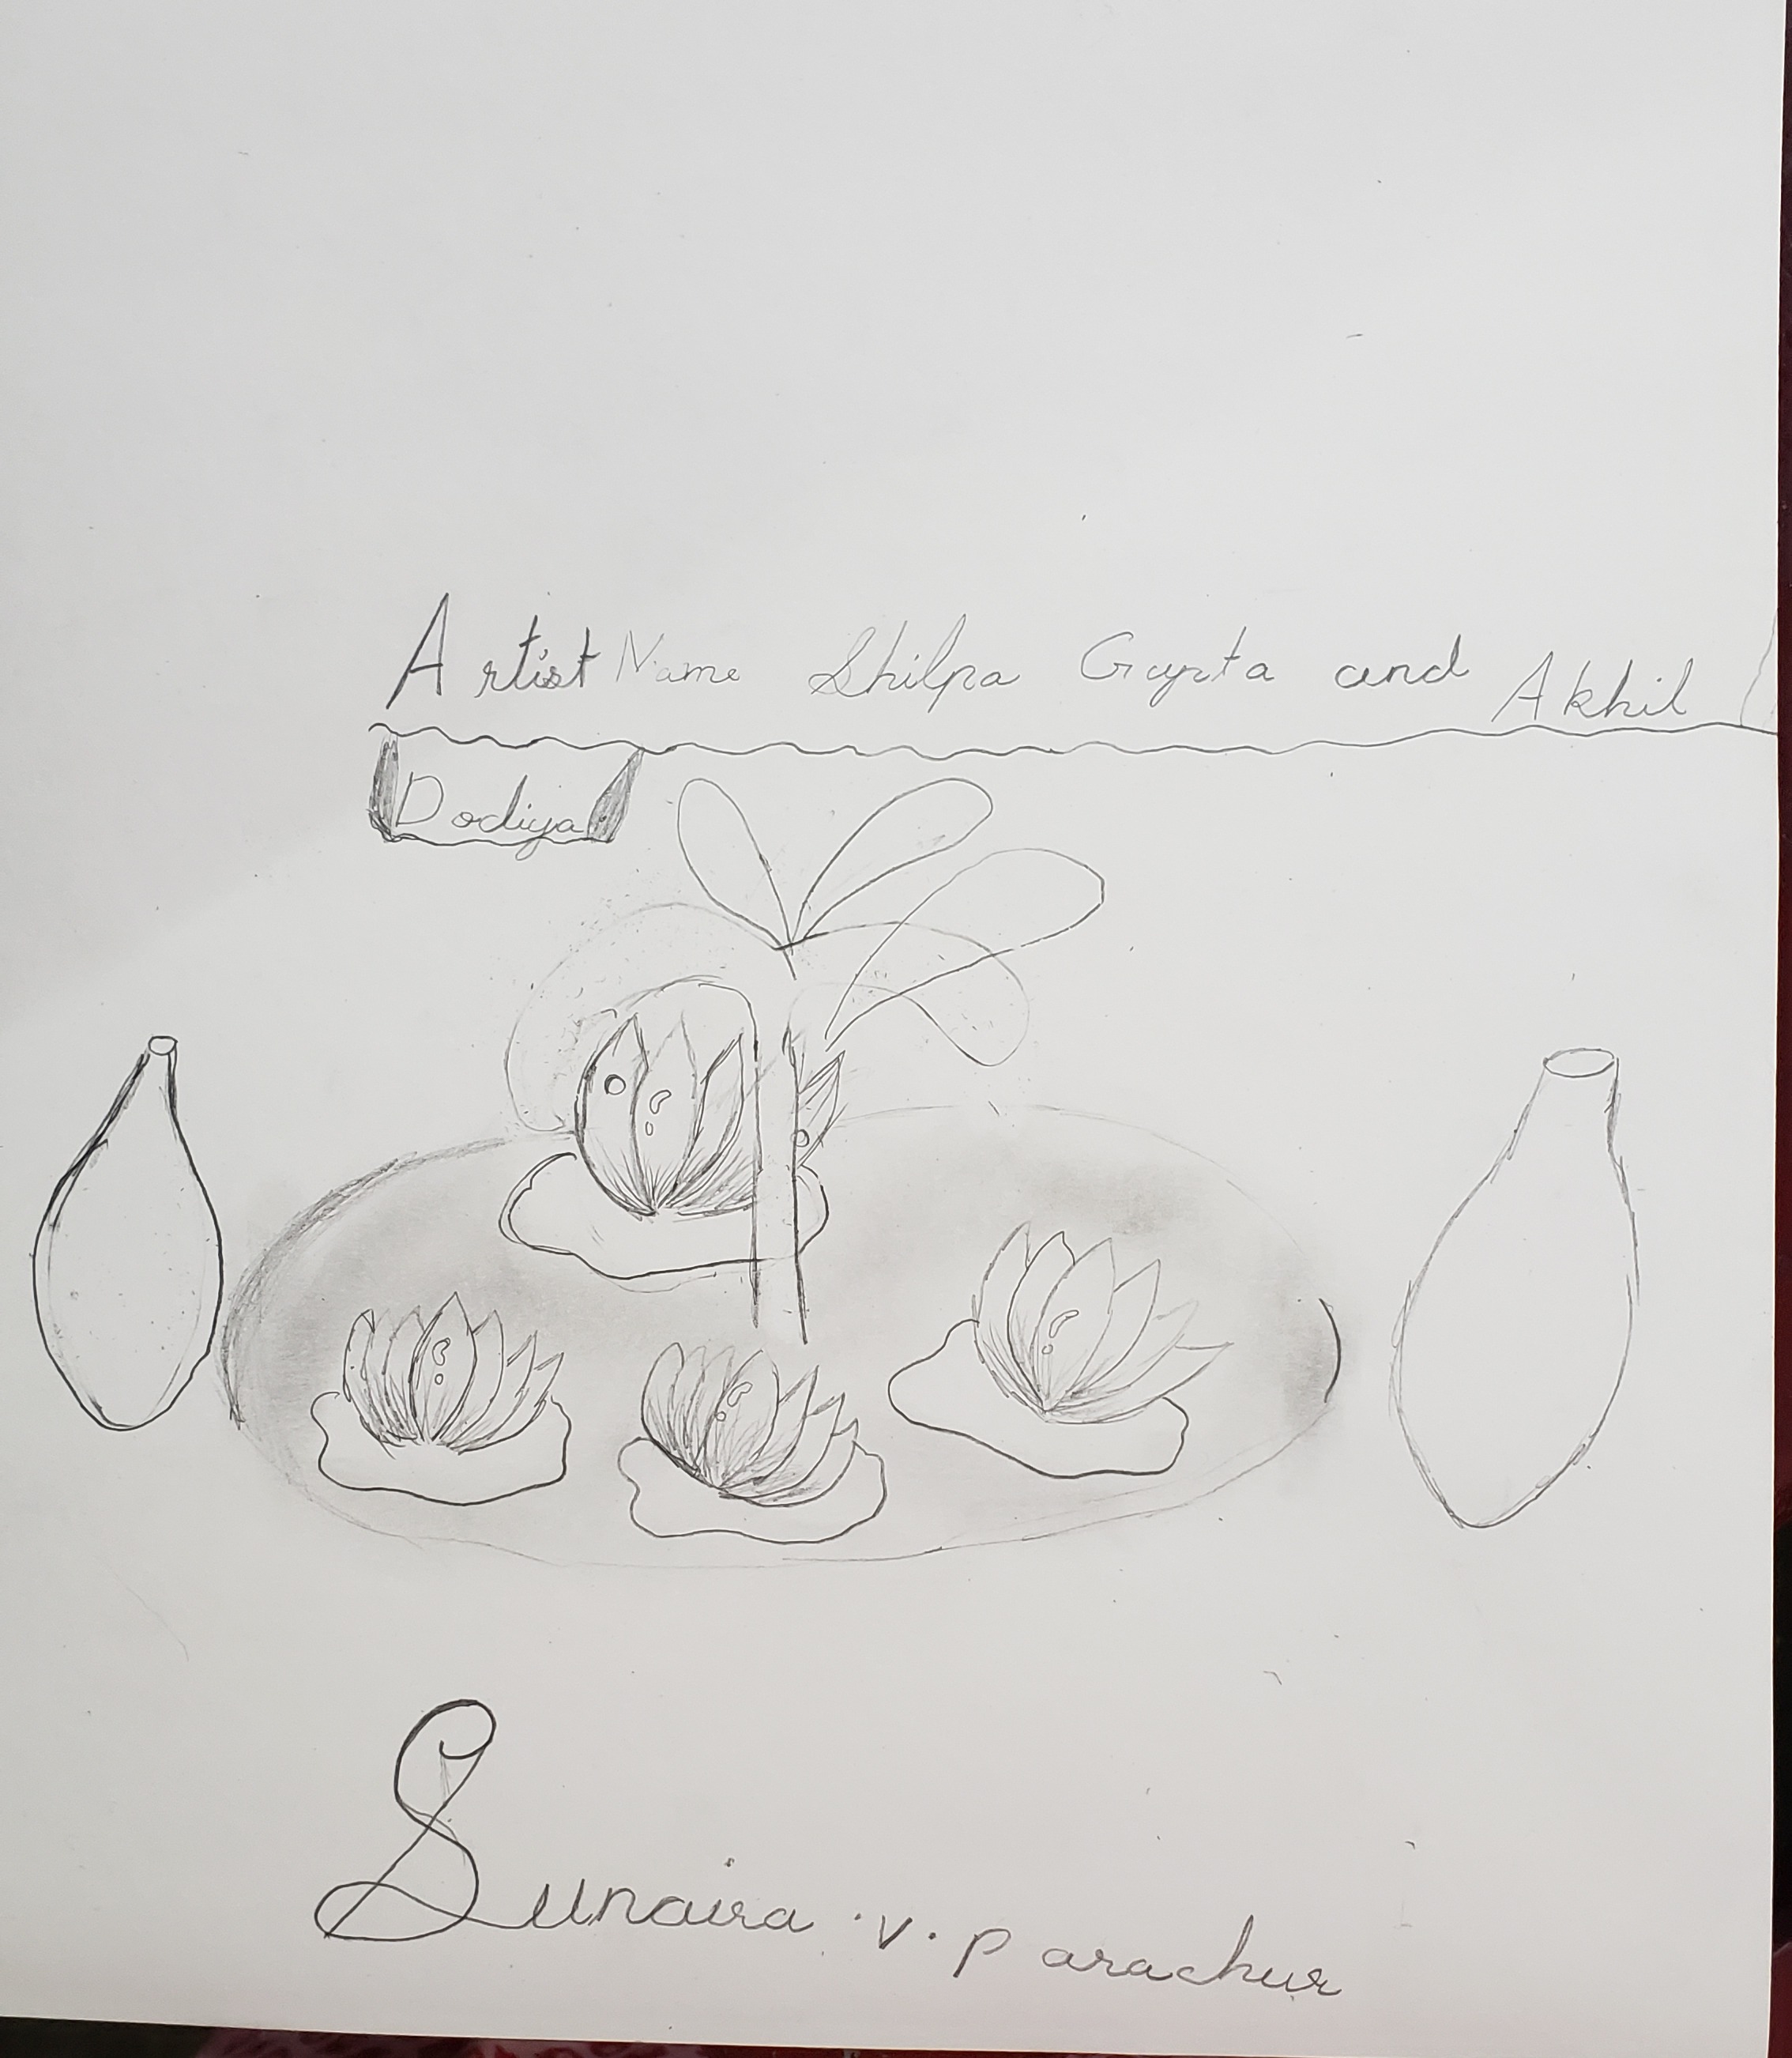 Artist Name Shilpa Gupta and Akhil
Dodiya
Sunaira .v. parachur